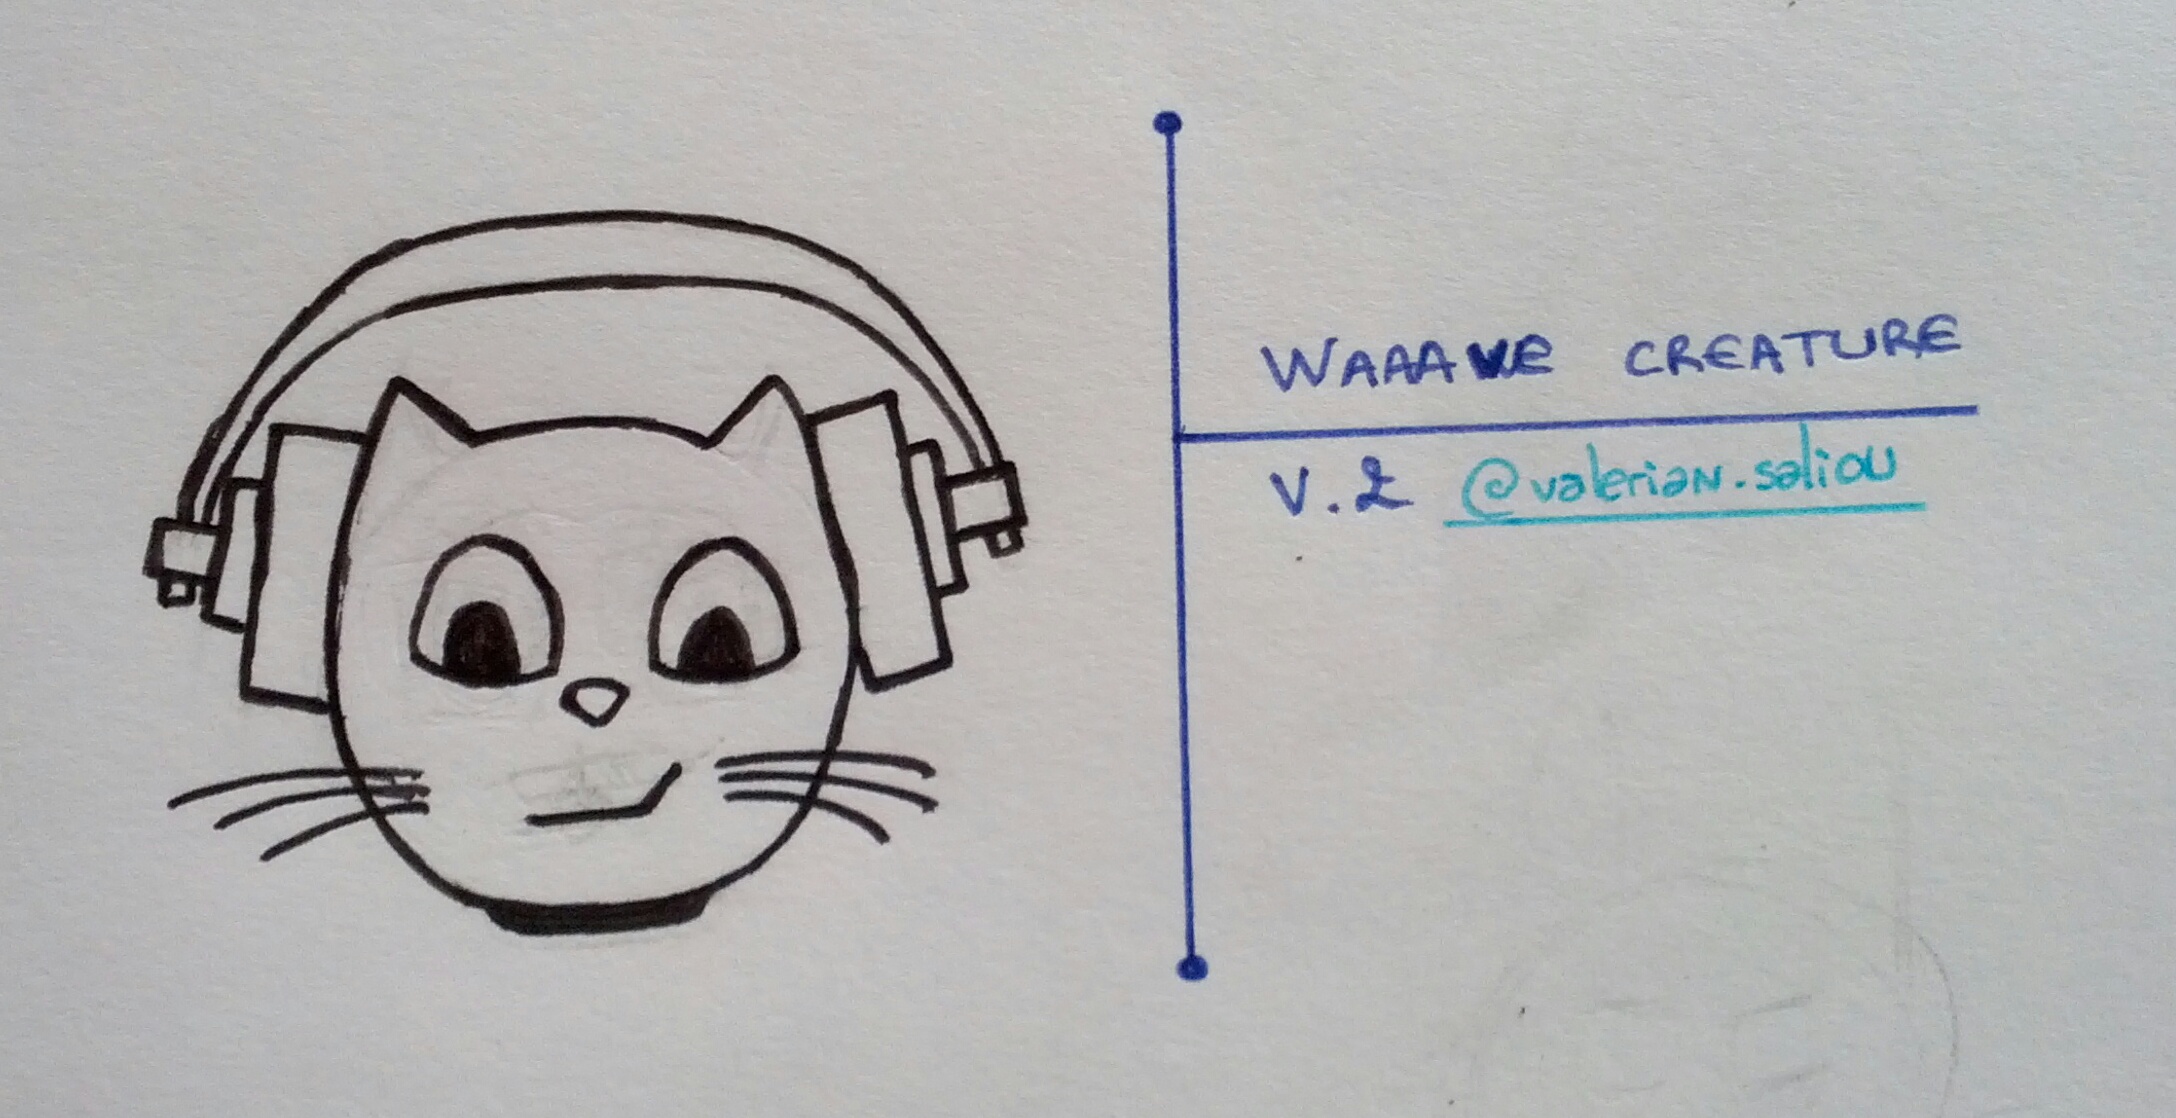 WAAAVE CREATURE
V.2 @valerian.saliou